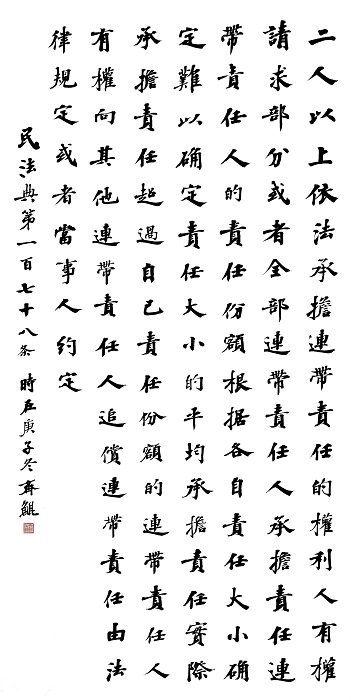 二人以上依法承擔連帶責任的權利人有權
請求部分或者全部連帶責任人承擔責任連
帶責任人的責任份額根据各自責任大小确
定難以确定責任大小的平均承擔責任實際
承擔責任超過自己責任份額的連帶責任人
有權向其他連帶責任人追償連帶責任由法
律規定或者當事人約定
民法典第一百七十八条 時在庚子冬